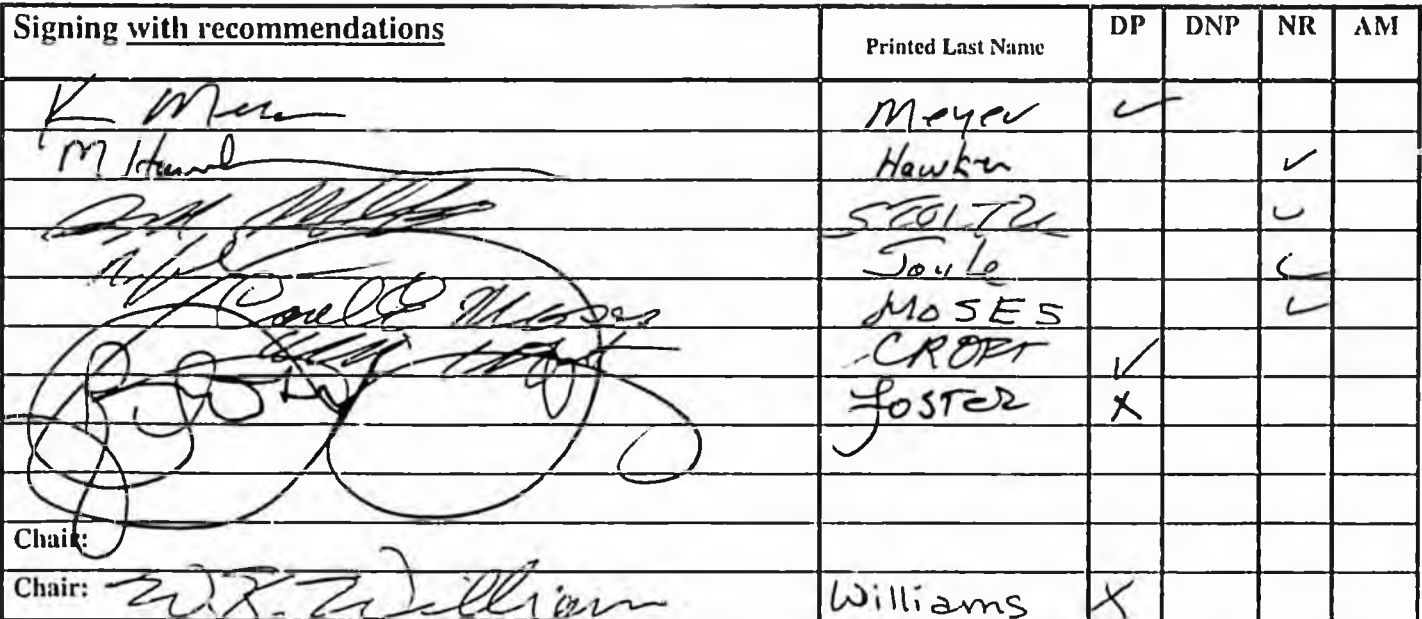 Signing with recommendations Printed Last Name DP DNP NR AM
K Meyer ✓
M Hawker ✓
STOLTZE ✓
Joule ✓
Moses MOSES ✓
CROFT ✓
FOSTER X
Chair:
Chair: W.K. William Williams X